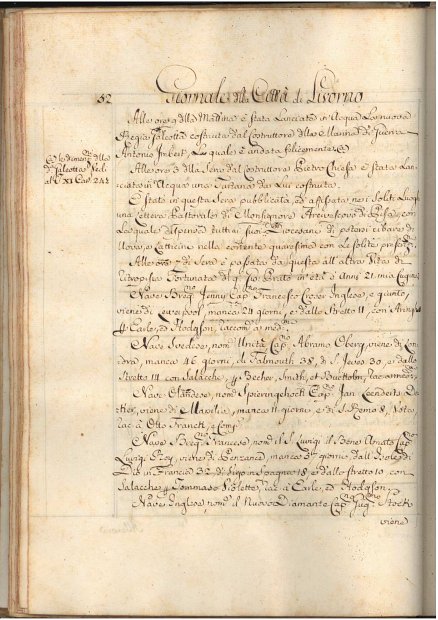 52
Giornale della Città di Livorno
Alle ore 9 della Mattina è stata Lanciata in Acqua La nuova
Regia Galeotta costruita dal Costruttore della Marina di Guerra
Antonio Imbert, La quale è andata felicemente
Le dimen: della
d.a Galeotta Vedi
al T. XI Car. 242
Alle ore 3 della Sera dal Costruttore Pietro Chiesa è stata Lan
ciata in Acqua una Tartana da Lui costruita
È stato in questa Sera pubblicata, ed affissata nei Soliti Luoghi
una Lettera Pastorale di Monsignore Arcivescovo di Pisa, con
La quale dispensa tutti i suoi Diocesani di potersi cibare di
Uova, e Latticini nella corrente quaresima con Le solite
Alle ore 7 di Sera è passata da questa all'altra Vita di
Fortunata del q.m Prato in età d'Anni 21 mia Cugina
Nave Jenny Cap. Francesco Inglese, è giunto,
viene di Leverpool, manca 24 giorni, e dallo Stretto 11, con Aringhe
Earle, ed Hodgson,
Nave Svedese, nom. Unità Cap. Abramo Oberg, viene di Lon
dra, manca 46 giorni, di Falmouth 38, di S. Ives 30, e dallo
Stretto 14 con Salacche, Becher, Smith, et
Nave Olandese, nom. Cap. Jan Leenderts
viene di Marsilia, manca 11 giorno, e di S. Remo 8, Vota,
a Otto Franck, e Comp.
Nave Francese, nom. il S. Luigi il Benes Amats Cap.
Luigi Rey, viene di Penzance, manca giorni, dall'Isole di
in Francia 32, di Vigo in Spagna 18, e dallo Stretto 10, con
Salacche, Tommaso à Earle, ed Hodgson
Nave Inglese nom. il Nuovo Diamante Cap.
viene